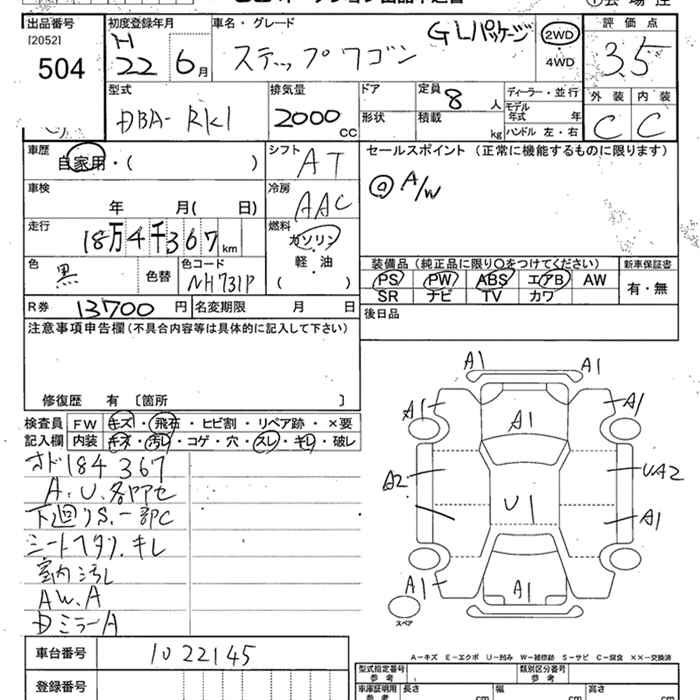 出品番号 初度登録年月 車名・グレード GLパッケージ 2WD 評価点
[2052] H ステップワゴン 4WD 3.5
504 22 6月
型式 排気量 ドア 定員 8 人 ディーラー・並行 外装 内装
DBA-RK1 2000 CC 形状 積載 kg モデル年式 年 C C
ハンドル 左・右
車歴 自家用・( ) シフト AT セールスポイント (正常に機能するものに限ります)
車検 年 月( 日) 冷房 AAC ◎A/W
走行 18万4千367km 燃料 ガソリン 軽・油 ( )
色 黒 色替 色コード NH731P
装備品 (純正品に限り○をつけてください) 新車保証書
PS PW ABS エアB AW 有・無
SR ナビ TV カワ
R券 13700 円 名変期限 月 日 後日品
注意事項申告欄 (不具合内容等は具体的に記入して下さい)
修復歴 有 [箇所 ]
検査員 FW キズ・飛石・ヒビ割・リペア跡・×要
記入欄 内装 キズ・汚レ・コゲ・穴・スレ・キレ・破レ
オド184367
A.U.各所アセ
下廻りS.一部C
シートヘタリ.キレ
室内汚レ
AW.A
Dミラー A
車台番号 1022145
登録番号
A1 A1
A1 A1 A1
A2 UA2
U1 A1
A1 A1
スペア
A-キズ E-エクボ U-凹み W-補修跡 S-サビ C-腐食 XX-交換済
型式指定番号 参考 類別区分番号 参考
車庫証明用 参考 長さ cm 幅 cm 高さ cm